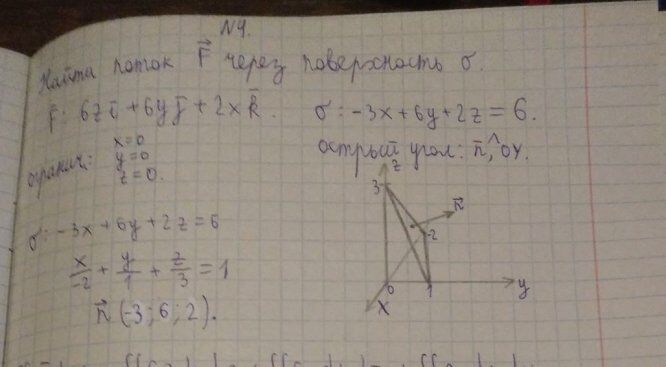 N4.
Найти поток F⃗ через поверхность σ.
F̄: 6z ī + 6y j̄ + 2x k̄. σ: -3x + 6y + 2z = 6.
огранич: x=0
y=0
z=0.
острый угол: n̄,^ оy.
σ: -3x + 6y + 2z = 6
x/-2 + y/1 + z/3 = 1
n⃗ (-3; 6; 2).
z
3
n̄
-2
0
1
y
x